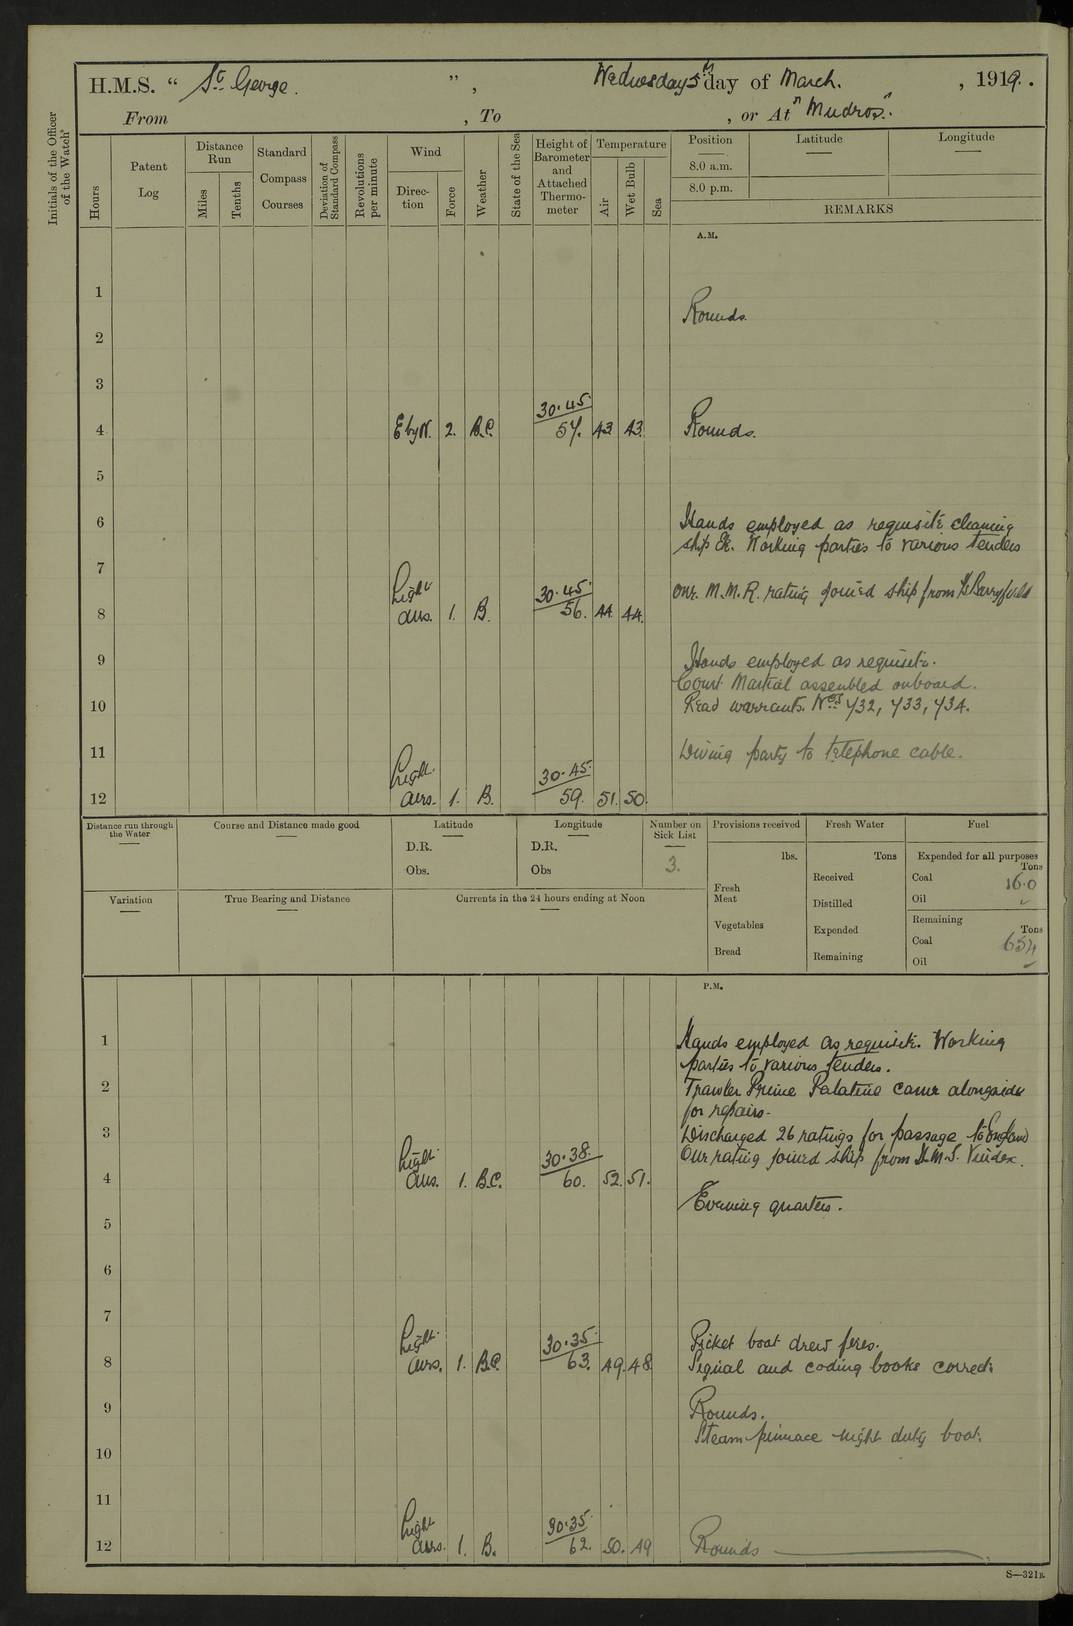 H.M.S. “ St. George. ”, Wednesday 5th day of March. , 1919.
From , To , or At "Mudros".
Initials of the Officer of the Watch
Hours
Patent Log
Distance Run
Miles
Tenths
Standard Compass Courses
Deviation of Standard Compass
Revolutions per minute
Wind
Direction
Force
Weather
State of the Sea
Height of Barometer and Attached Thermometer
Temperature
Air
Wet Bulb
Sea
Position
8.0 a.m.
8.0 p.m.
Latitude
Longitude
REMARKS
A.M.
1
Rounds.
2
3
4 E by N. 2. B.C. 30.45. 57. 43 43 Rounds.
5
6 Hands employed as requisite cleaning
ship &c. Working parties to various tenders
7
One M.M.R. rating joined ship from
8 Light airs. 1. B. 30.45. 56. 44 44.
9 Hands employed as requisite.
Court Martial assembled onboard.
10 Read warrants. Nos. 432, 433, 434.
11 Diving party to telephone cable.
12 Light airs. 1. B. 30.45. 59. 51. 50.
Distance run through the Water
Course and Distance made good
Latitude
D.R.
Obs.
Longitude
D.R.
Obs
Number on Sick List
3.
Provisions received
lbs.
Fresh Meat
Vegetables
Bread
Fresh Water
Tons
Received
Distilled
Expended
Remaining
Fuel
Expended for all purposes
Tons
Coal 16.0
Oil ✓
Remaining
Tons
Coal 654
Oil ✓
Variation
True Bearing and Distance
Currents in the 24 hours ending at Noon
P.M.
1 Hands employed as requisite. Working
parties to various tenders.
2 Trawler Prince Palatine came alongside
for repairs.
3 Discharged 26 ratings for passage to England
One rating joined ship from H.M.S. Vindex.
4 Light airs. 1. B.C. 30.38. 60. 52. 51.
Evening quarters.
5
6
7
Picket boat drew fires.
8 Light airs. 1. B.C. 30.35. 63. 49. 48. Signal and coding books correct.
9 Rounds.
Steam pinnace night duty boat.
10
11
12 Light airs. 1. B. 30.35. 62. 50. 49 Rounds
S—321B.